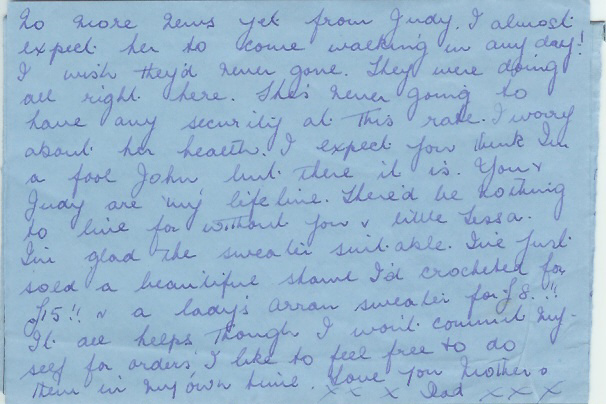 No more news yet from Judy. I almost
expect her to come walking in any day!
I wish they'd never gone. They were doing
all right here. She's never going to
have any security at this rate. I worry
about her health. I expect you think I'm
a fool John but there it is. You &
Judy are my life line. There'd be nothing
to live for without you & little Lissa.
I'm glad the sweater suitable. I've just
sold a beautiful shawl I'd crocheted for
£15!! & a lady's arran sweater for £8.!!
It all helps though I won't commit my-
self for orders I like to feel free to do
them in my own time. Love you Mother &
xx x Dad xxx